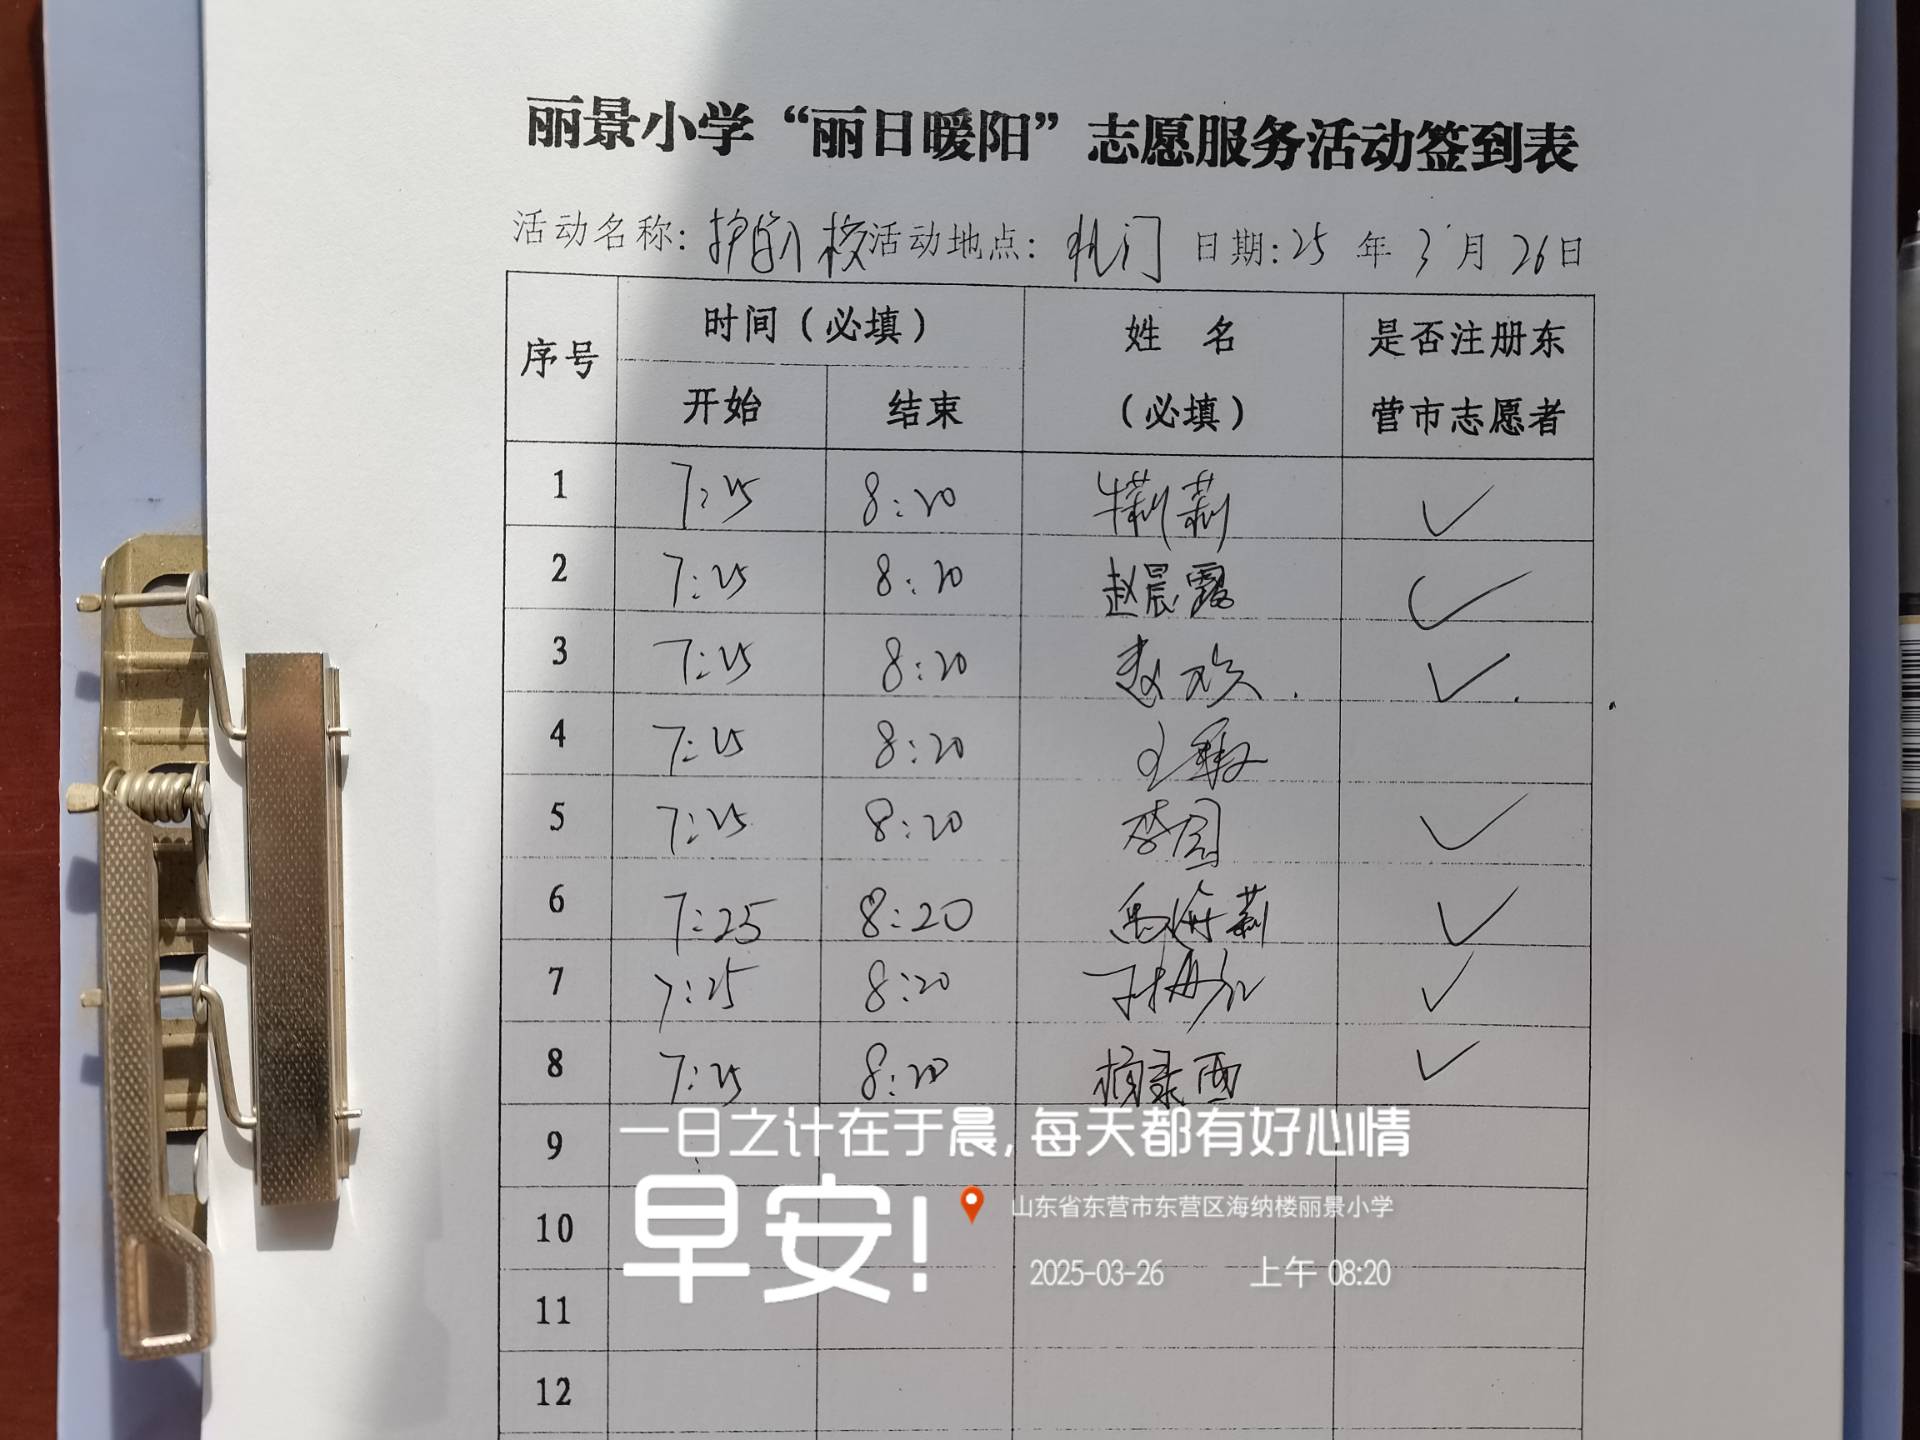 丽景小学“丽日暖阳”志愿服务活动签到表
活动名称: 护学入校 活动地点: 校门 日期: 25 年 3 月 26 日
序号 时间（必填） 姓 名（必填） 是否注册东营市志愿者
开始 结束
1 7:25 8:20 牛莉莉 ✓
2 7:25 8:20 赵晨露 ✓
3 7:25 8:20 赵欢 ✓
4 7:25 8:20 王
5 7:25 8:20 李园 ✓
6 7:25 8:20 海莉 ✓
7 7:25 8:20 ✓
8 7:25 8:20 杨 ✓
9
10
11
12
一日之计在于晨, 每天都有好心情
早安!
山东省东营市东营区海纳楼丽景小学
2025-03-26 上午 08:20